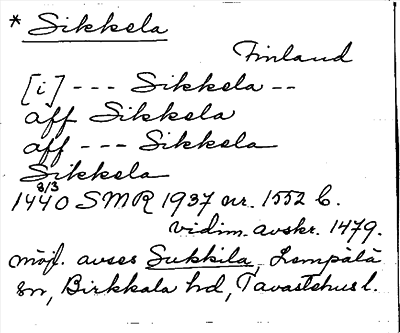 * Sikkela
Finland
[i] --- Sikkela --
aff Sikkela
aff --- Sikkela
Sikkela
1440 8/3 SMR 1937 nr. 1552 b.
vidim. avskr. 1479.
möjl. avses Sukkila, Lempälä
sn, Birkkala hd, Tavastehus l.